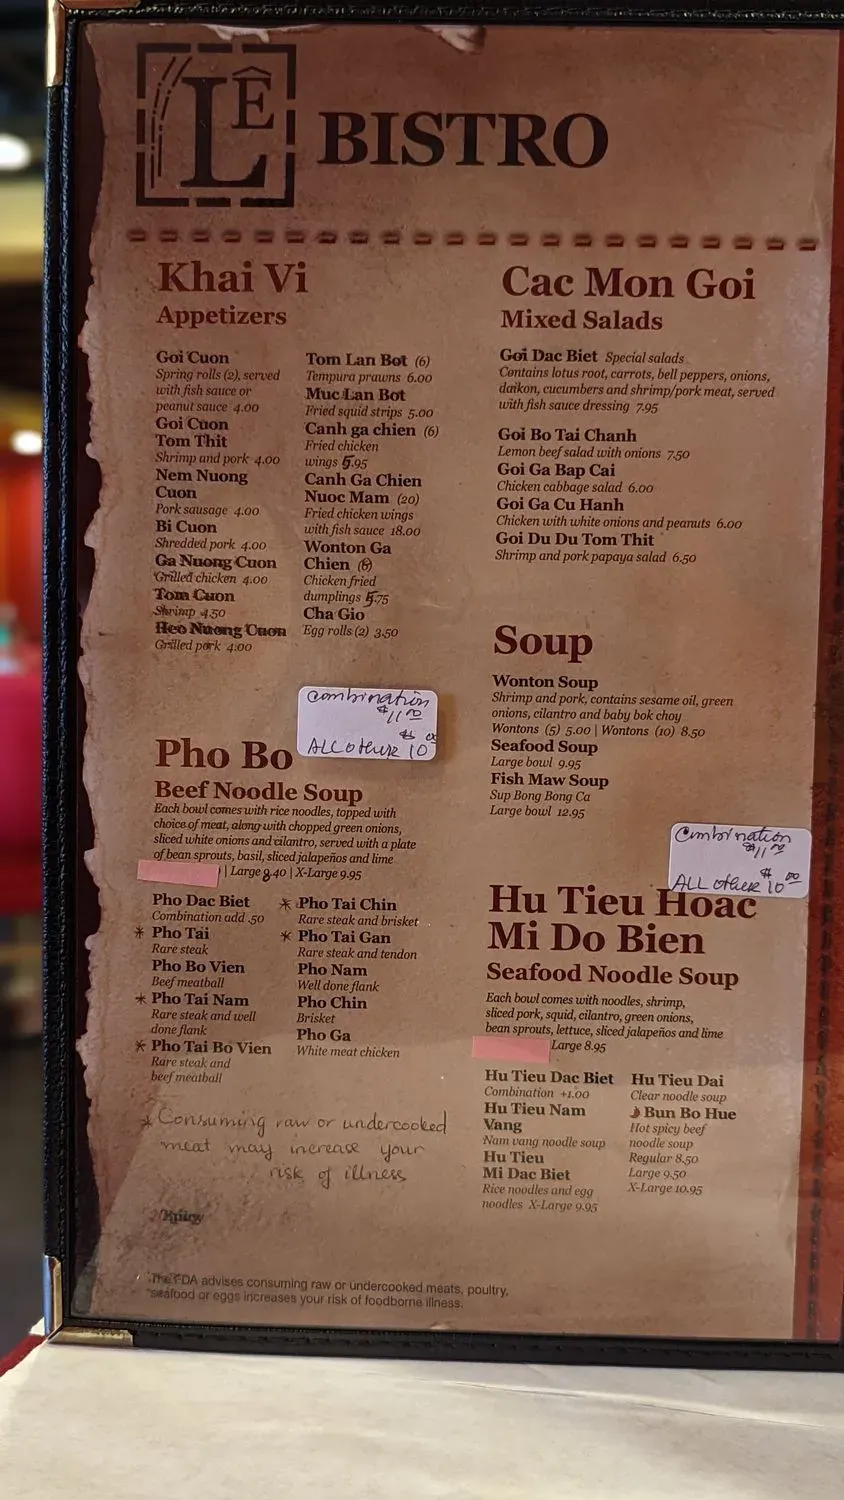 LÊ
BISTRO
Khai Vi
Appetizers
Goi Cuon
Spring rolls (2), served
with fish sauce or
peanut sauce 4.00
Goi Cuon
Tom Thit
Shrimp and pork 4.00
Nem Nuong
Cuon
Pork sausage 4.00
Bi Cuon
Shredded pork 4.00
Ga Nuong Cuon
Grilled chicken 4.00
Tom Cuon
Shrimp 4.50
Heo Nuong Cuon
Grilled pork 4.00
Tom Lan Bot (6)
Tempura prawns 6.00
Muc Lan Bot
Fried squid strips 5.00
Canh ga chien (6)
Fried chicken
wings 5.95
Canh Ga Chien
Nuoc Mam (20)
Fried chicken wings
with fish sauce 18.00
Wonton Ga
Chien
Chicken fried
dumplings 5.75
Cha Gio
Egg rolls (2) 3.50
Combination
$11.00
ALL other $10.00
Pho Bo
Beef Noodle Soup
Each bowl comes with rice noodles, topped with
choice of meat, along with chopped green onions,
sliced white onions and cilantro, served with a plate
of bean sprouts, basil, sliced jalapeños and lime
| Large 8.40 | X-Large 9.95
Pho Dac Biet
Combination add .50
* Pho Tai
Rare steak
Pho Bo Vien
Beef meatball
* Pho Tai Nam
Rare steak and well
done flank
* Pho Tai Bo Vien
Rare steak and
beef meatball
* Pho Tai Chin
Rare steak and brisket
* Pho Tai Gan
Rare steak and tendon
Pho Nam
Well done flank
Pho Chin
Brisket
Pho Ga
White meat chicken
* Consuming raw or undercooked
meat may increase your
risk of illness
Spicy
The FDA advises consuming raw or undercooked meats, poultry,
seafood or eggs increases your risk of foodborne illness.
Cac Mon Goi
Mixed Salads
Goi Dac Biet Special salads
Contains lotus root, carrots, bell peppers, onions,
daikon, cucumbers and shrimp/pork meat, served
with fish sauce dressing 7.95
Goi Bo Tai Chanh
Lemon beef salad with onions 7.50
Goi Ga Bap Cai
Chicken cabbage salad 6.00
Goi Ga Cu Hanh
Chicken with white onions and peanuts 6.00
Goi Du Du Tom Thit
Shrimp and pork papaya salad 6.50
Soup
Wonton Soup
Shrimp and pork, contains sesame oil, green
onions, cilantro and baby bok choy
Wontons (5) 5.00 | Wontons (10) 8.50
Seafood Soup
Large bowl 9.95
Fish Maw Soup
Sup Bong Bong Ca
Large bowl 12.95
Combination
$11.00
ALL other $10.00
Hu Tieu Hoac
Mi Do Bien
Seafood Noodle Soup
Each bowl comes with noodles, shrimp,
sliced pork, squid, cilantro, green onions,
bean sprouts, lettuce, sliced jalapeños and lime
Large 8.95
Hu Tieu Dac Biet
Combination +1.00
Hu Tieu Nam
Vang
Nam vang noodle soup
Hu Tieu
Mi Dac Biet
Rice noodles and egg
noodles X-Large 9.95
Hu Tieu Dai
Clear noodle soup
Bun Bo Hue
Hot spicy beef
noodle soup
Regular 8.50
Large 9.50
X-Large 10.95